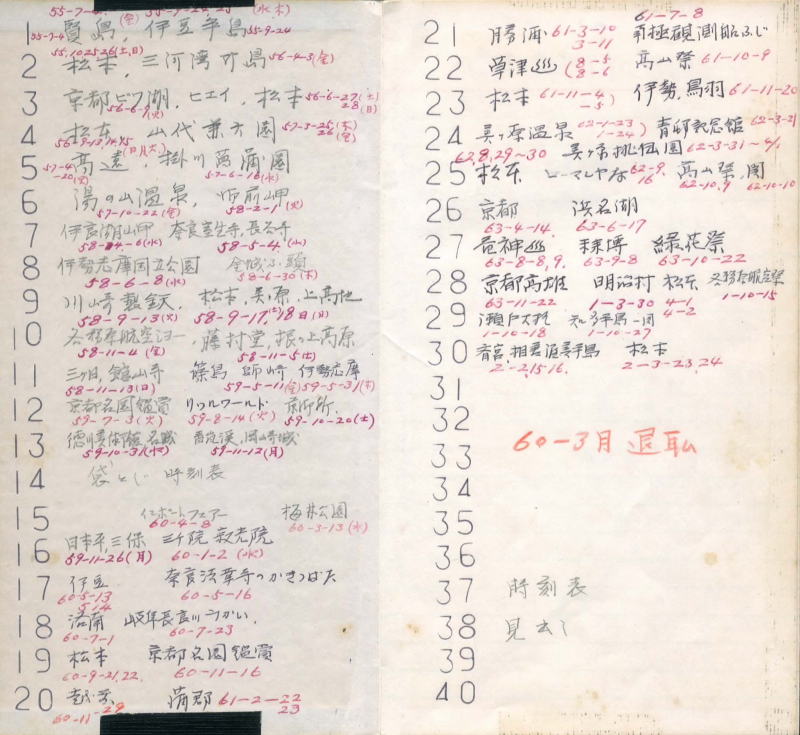 55-7-4 (金) 55-9-24 25 (水木)
1 賢島, 伊豆半島 55-9-24
55,10,25 26(土,日)
2 松本, 三河湾 竹島 56-4-3(金)
3 京都ビワ湖, ヒエイ, 松本 56-6-27(土) 28(日)
56-6-9(火)
4 松本 山代 兼六園 57-3-25(木) 26(金)
56-9-13,14,15 (日月火)
5 高遠, 掛川 菖蒲園
57-4-20(火) 57-6-16(水)
6 湯の山温泉, 師崎岬
57-10-22(金) 58-2-1(火)
7 伊良湖岬 奈良室生寺, 長谷寺
58-4-6(水) 58-5-4(水)
8 伊勢志摩国立公園
58-6-8(水) 58-6-30(木)
9 川崎製鉄, 松本, 美ヶ原, 上高地
58-9-13(火) 58-9-17(土)18日(日)
10 各務原航空ショー, 藤村堂, 根の上高原
58-11-4(金) 58-11-5(土)
11 三ヶ日, 舘山寺 篠島 師崎 伊勢志摩
58-11-13(日) 59-5-11(金) 59-5-31(木)
12 京都名園鑑賞 リトルワールド 京御所
59-7-3(火) 59-8-14(火) 59-10-20(土)
13 徳川美術館 名城 岡崎城
59-10-31(水) 59-11-12(月)
14 袋とじ 時刻表
15 インポートフェアー 梅林公園
60-4-8 60-3-13(水)
16 日本平, 三保 三千院 寂光院
59-11-26(月) 60-1-2(水)
17 伊豆 奈良法華寺のかきつばた
60-5-13 5-14 60-5-16
18 洛南 岐阜長良川うかい
60-7-1 60-7-23
19 松本 京都名園鑑賞
60-9-21,22 60-11-16
20 越前 蒲郡 61-2-22 23
60-11-29
61-7-8
21 勝浦 61-3-10 3-11 南極観測船ふじ
22 草津 (8-5 8-6 高山祭 61-10-9
23 松本 61-11-4 -5) 伊勢, 鳥羽 61-11-20
24 美ヶ原温泉 62-1-23 1-24) 青邨記念館 62-3-21
62,8,29~30 62-3-31~4/1
25 松本 62-9-16 高山祭, 関
62-10,9 62-10-10
26 京都 浜名湖
63-4-14. 63-6-17
27 緑花祭
63-8-8,9. 63-9-8 63-10-22
28 京都高雄 明治村 松本 各務原航空祭
63-11-22 1-3-30 4-1 4-2 1-10-15
29 瀬戸大橋 知多半島一周
1-10-18 1-10-27
30 松本
2-2,15,16. 2-3-23,24
31
32
33 60-3月 退耺
34
35
36
37 時刻表
38 見出し
39
40